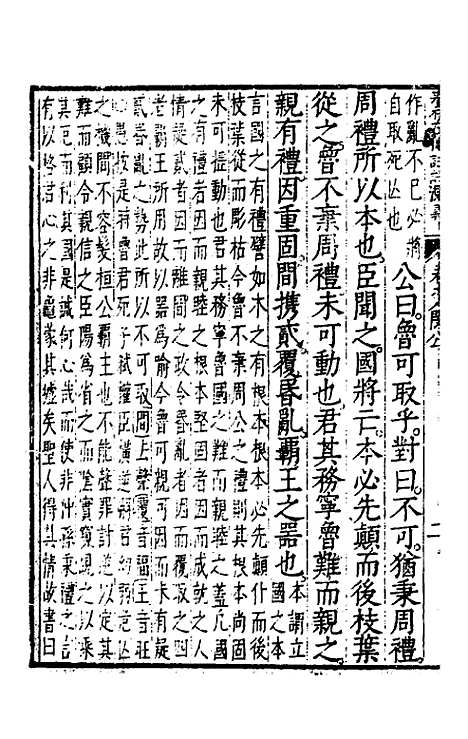 作亂不已必將
自取死亡也
公曰魯可取乎對曰不可猶秉周禮
周禮所以本也臣聞之國將亡本必先顛而後枝葉
從之魯不棄周禮未可動也君其務寧魯難而親之
親有禮因重固間攜貳覆昏亂霸王之器也
本謂立國之本
言國之有禮譬如木之有根本根本必先顛仆而後
枝葉從而彫枯今魯不棄周公之禮則其根本尚固
未可振動也君其務寧魯國之難而親睦之蓋凡國
之有禮者因而親之根本堅固者因而成就之有疑
情貳者因而間之政令昏亂者因而覆取之四
者霸王所用故以器為喻今魯可親可因而未有疑
貳昏亂之勢此所以不可取
齊侯
之機間不容髮桓公霸主也不能聲罪討逆以定其
難而顧令親信之臣陽為省之而陰實窺覘之以乘
其危而利其國是誠何心哉而使非出孫秉禮之言
有以啓君心之非龜蒙其墟矣聖人得其情故書曰